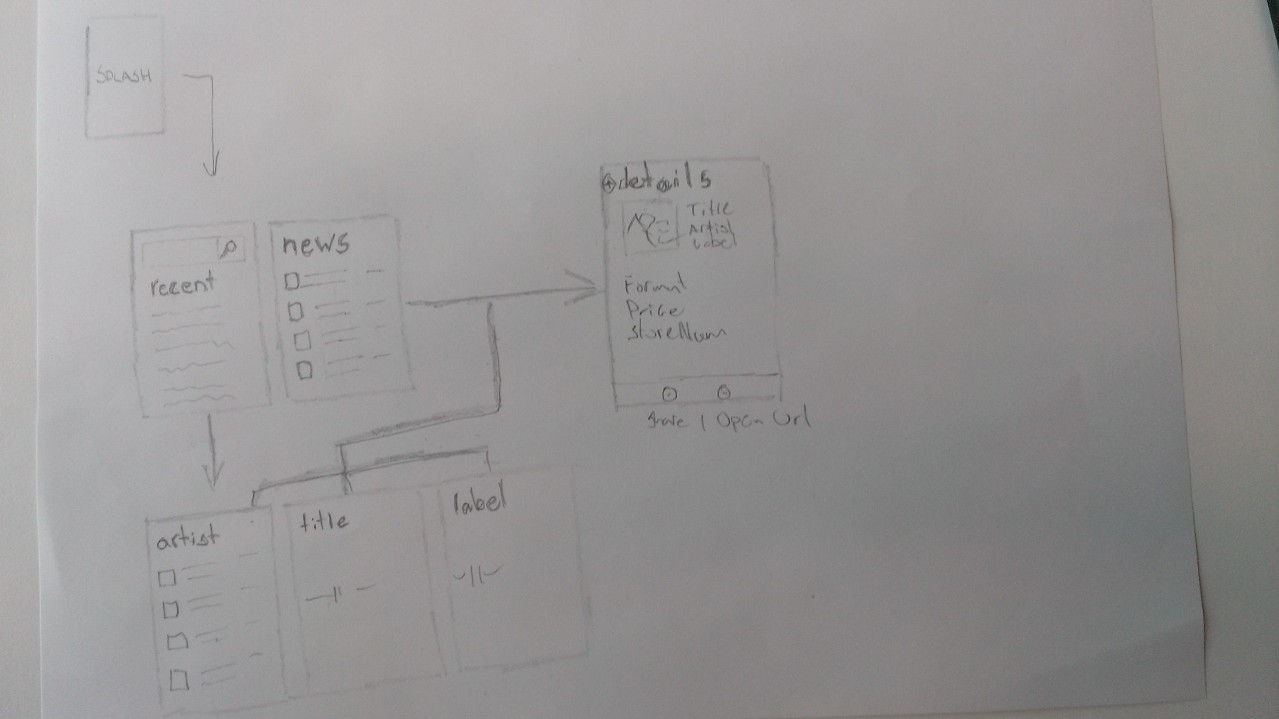 SPLASH
recent
news
details
Title
Artist
Label
Format
Price
StoreNum
Share | Open Url
artist
title
label